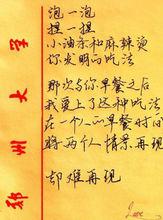 泡一泡
捏一捏
小油条和麻辣烫
你发明的吃法
那次与你早餐之后
我爱上了这种吃法
在一个人的早餐时间
将两个人情景再现
却难再现
郑州大学
Love